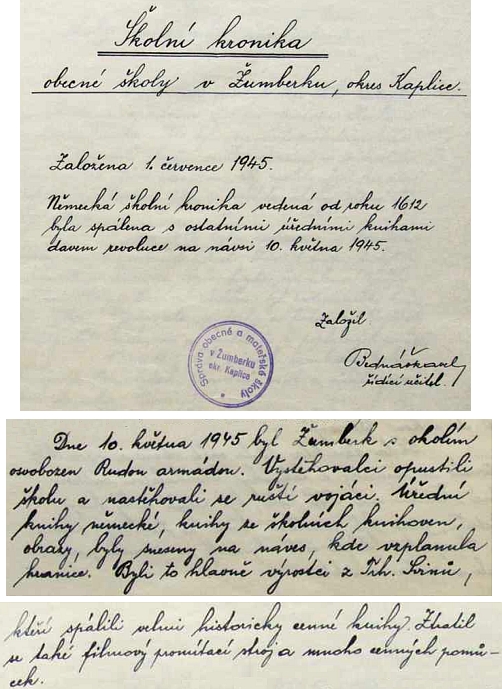 Školní kronika
obecné školy v Žumberku, okres Kaplice.
Založena 1. července 1945.
Německá školní kronika vedená od roku 1612
byla spálena s ostatními úředními knihami
davem revoluce na návsi 10. května 1945.
Založil
řídící učitel.
Správa obecné a mateřské školy
v Žumberku
okr. Kaplice
Dne 10. května 1945 byl Žumberk s okolím
osvobozen Rudou armádou. Vystěhovalci opustili
školu a nastěhovali se ruští vojáci. Úřední
knihy německé, knihy ze školních knihoven,
obrazy, byly sneseny na náves, kde vzplanula
hranice. Byli to hlavně výrostci z Trh. Svinů,
kteří spálili velmi historicky cenné knihy. Ztratil
se také filmový promítací stroj a mnoho cenných pomů-
cek.